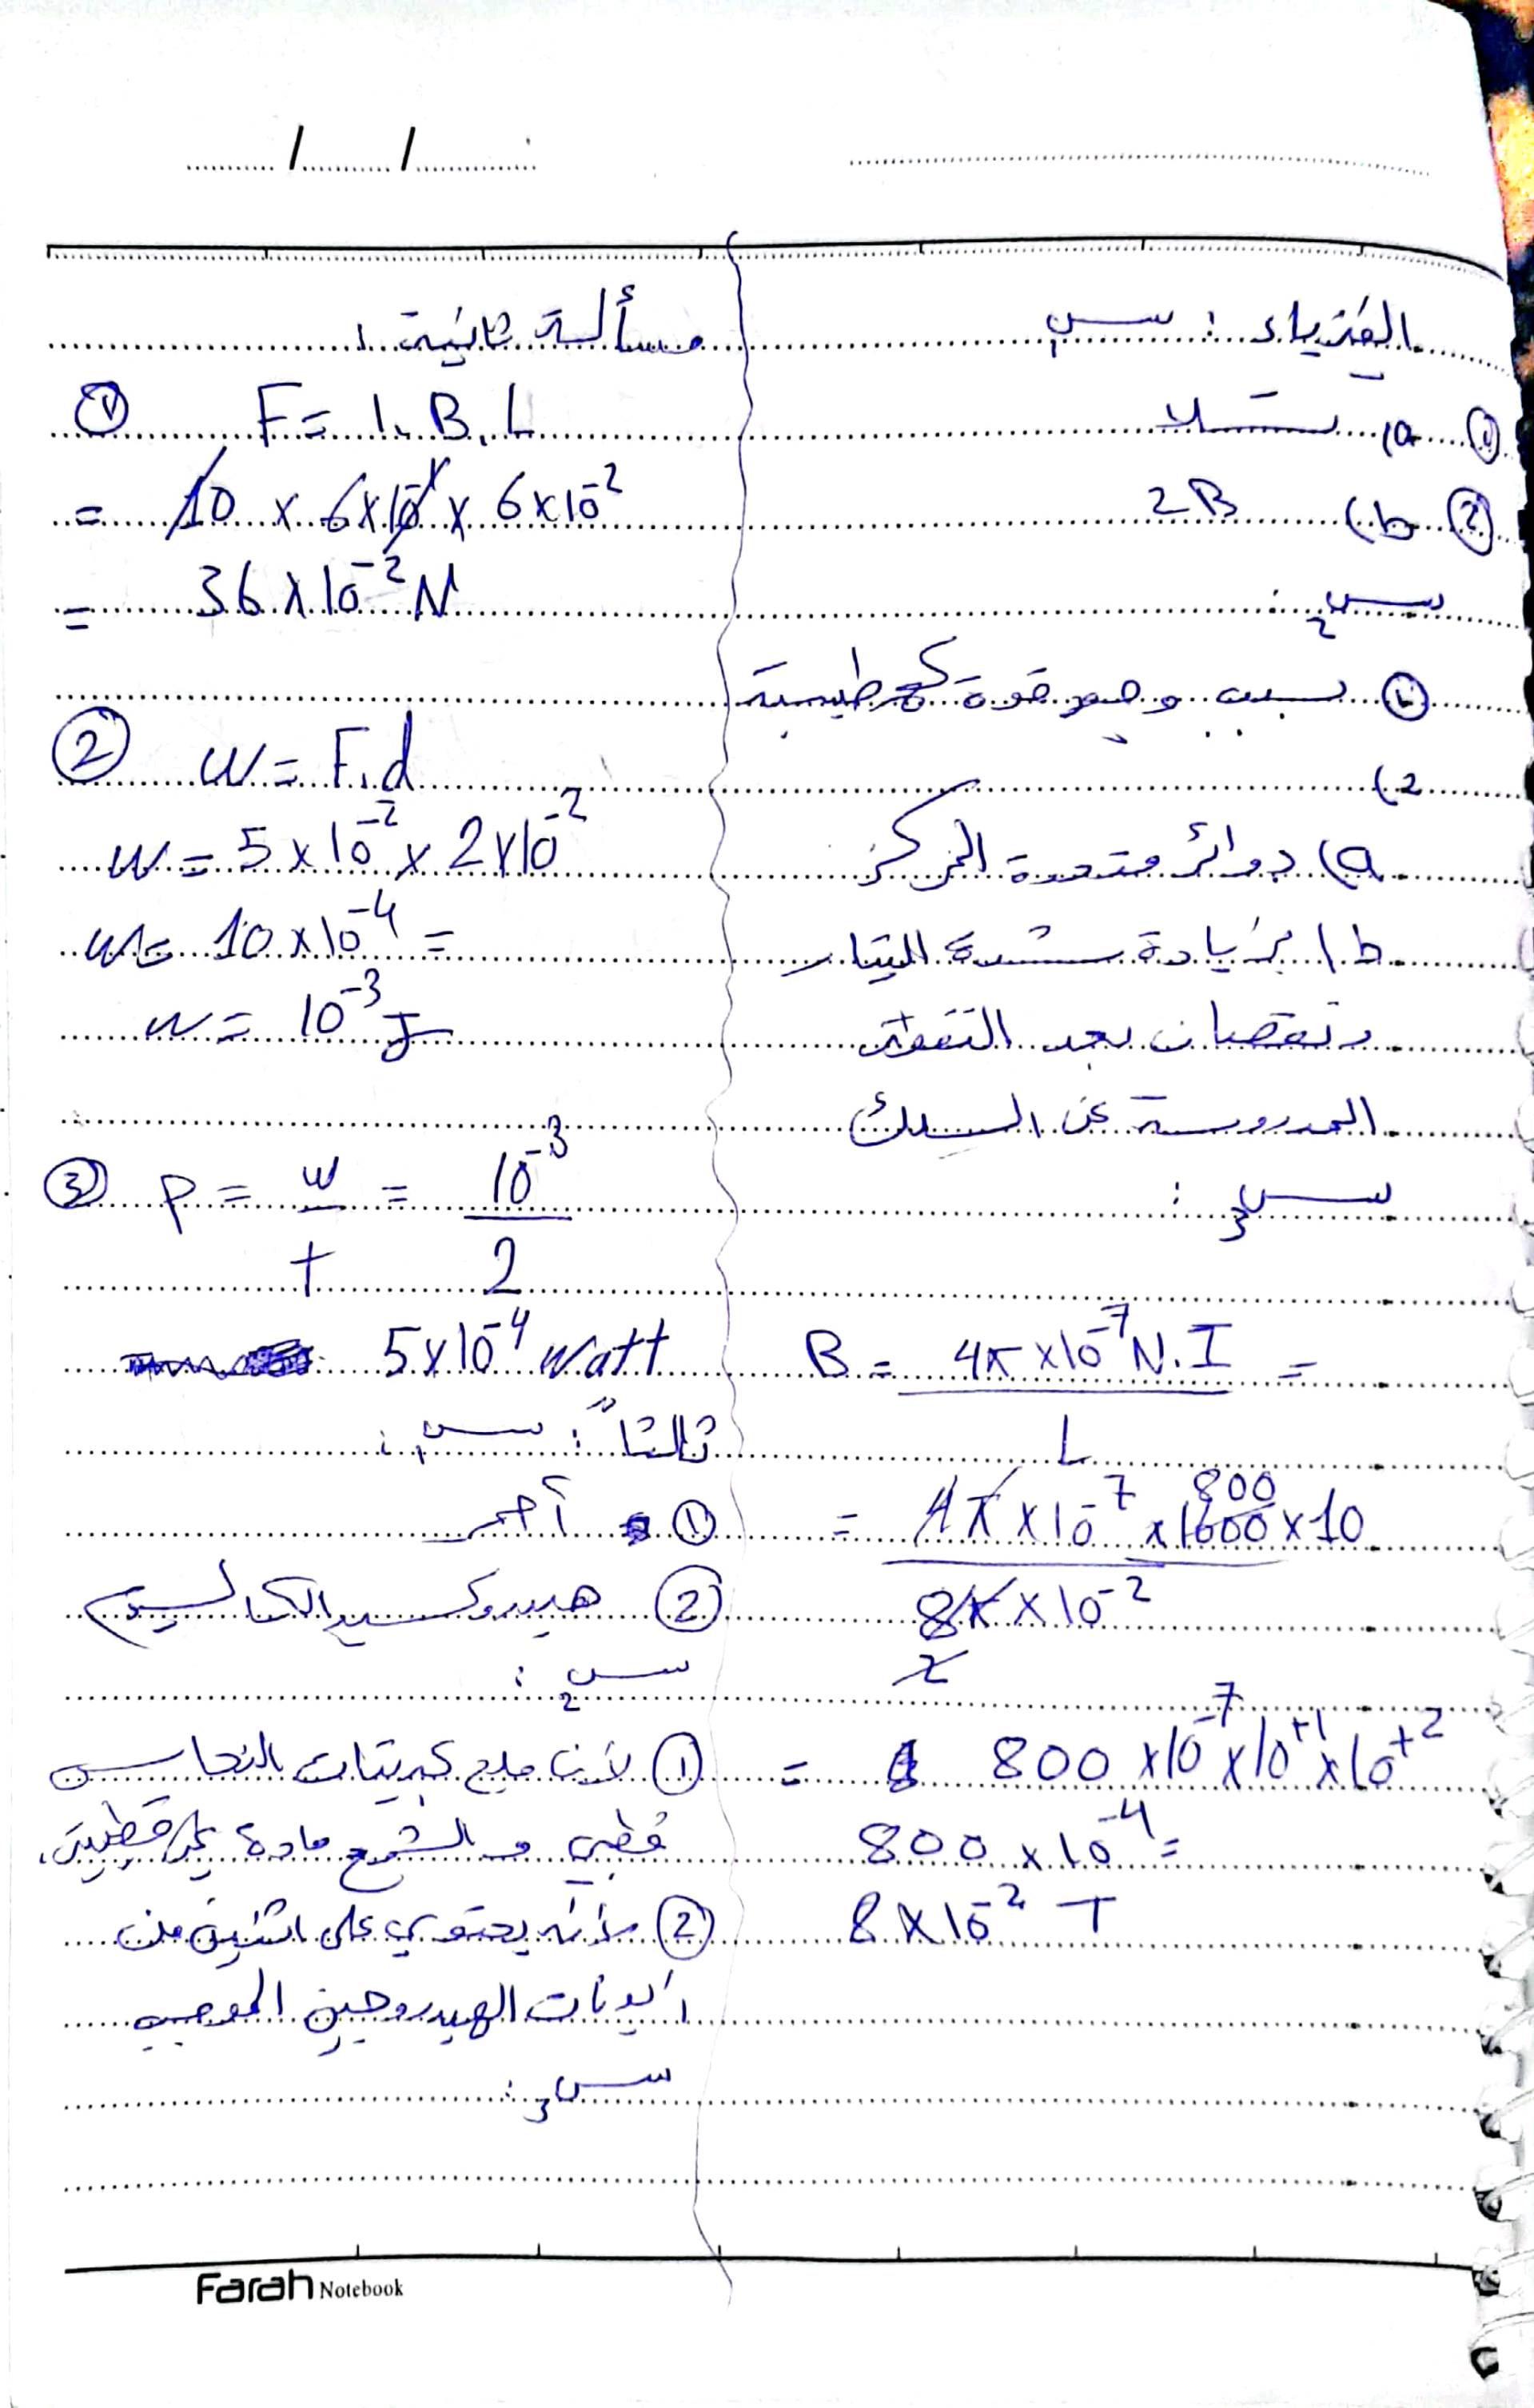 / /
الفيزياء : س1
① a) تسلا
② b) 2B
س2 :
① بسبب وجود قوة كهرطيسية
2)
a) دوائر متحدة المركز
b) بزيادة شدة التيار
ونقصان بعد النقطة
المدروسة عن السلك
س3 :
B = 4π x10^-7 N.I / L =
= 4π x 10^-7 x 1600 x 10 / 8π x 10^-2
800
2
= 800 x10^-7 x 10^+1 x 10^+2
800 x 10^-4 =
8 x 10^-2 T
مسألة ثانية :
① F = I. B. L
= 10 x 6 x 10^-1 x 6 x 10^-2
= 36 x 10^-2 N
② W = F. d
W = 5 x 10^-2 x 2 x 10^-2
W = 10 x 10^-4 =
W = 10^-3 J
③ P = W / t = 10^-3 / 2
5 x 10^-4 Watt
ثالثاً : س1 :
① أحمر
② هيدروكسيد الكالسيوم
س2 :
① لأن ملح كبريتات النحاس
قطبي و الشمع مادة غير قطبية
② لأنه يحتوي على اثنين من
ايونات الهيدروجين الموجبة
س3 :
Farah Notebook